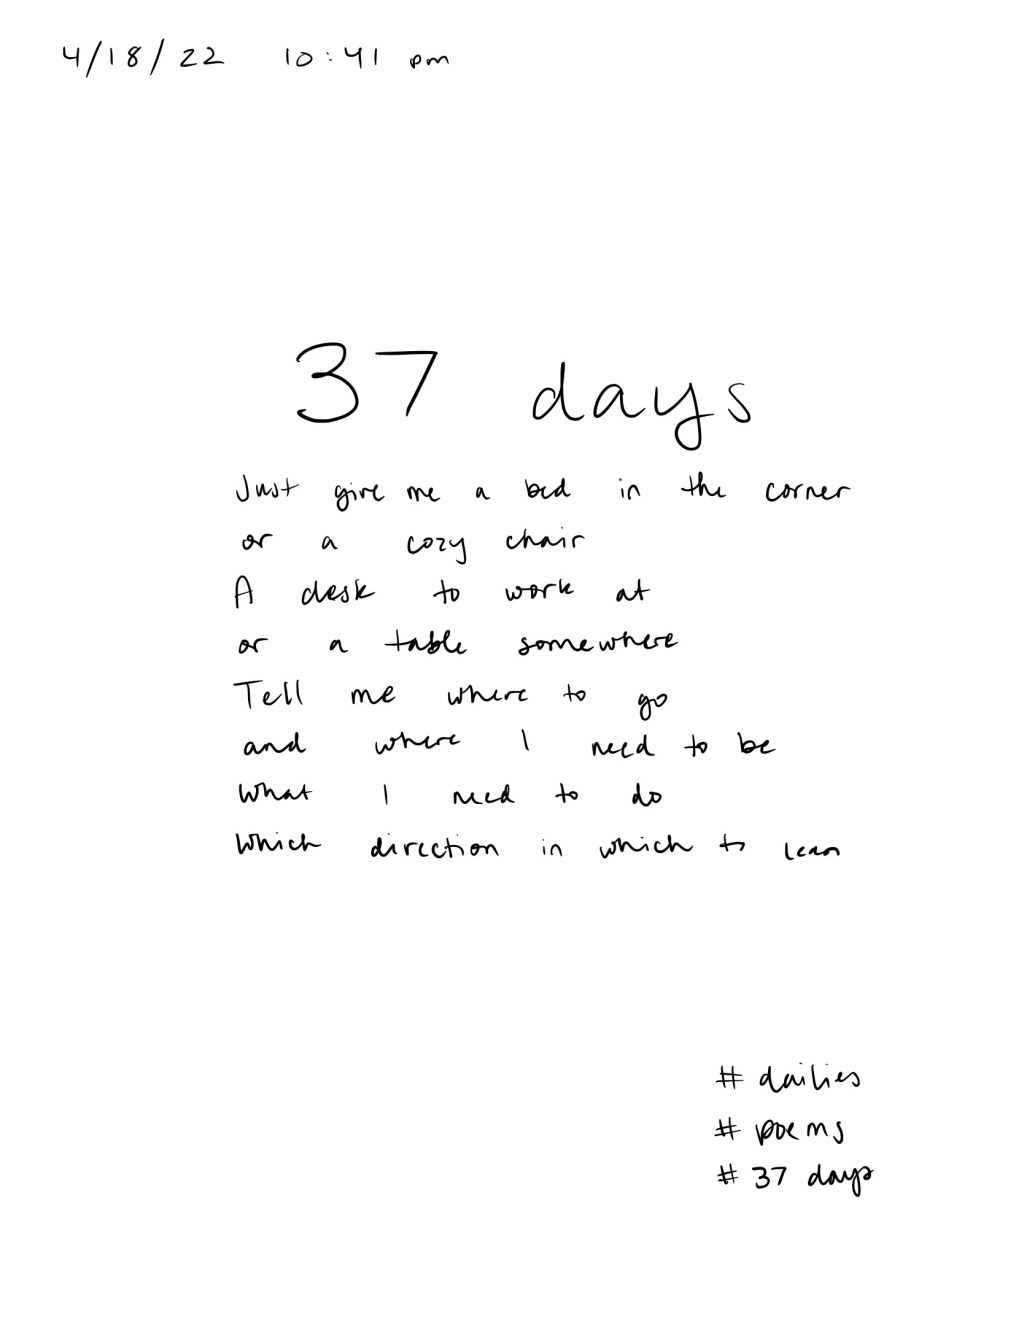 4/18/22 10:41 pm
37 days
Just give me a bed in the corner
or a cozy chair
A desk to work at
or a table somewhere
Tell me where to go
and where I need to be
What I need to do
Which direction in which to lean
# dailies
# poems
# 37 days